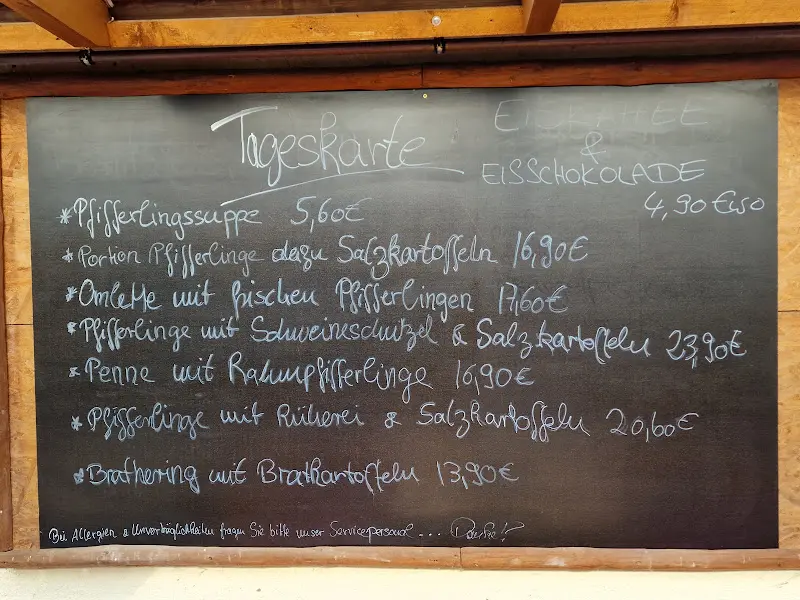 Tageskarte
EISKAFFEE
&
EISSCHOKOLADE
4,90 Euro
*Pfifferlingssuppe 5,60€
*Portion Pfifferlinge dazu Salzkartoffeln 16,90€
*Omlette mit frischen Pfifferlingen 17,60€
*Pfifferlinge mit Schweineschnitzel & Salzkartoffeln 23,90€
*Penne mit Rahmpfifferlinge 16,90€
*Pfifferlinge mit Rüherei & Salzkartoffeln 20,60€
*Brathering mit Bratkartoffeln 13,90€
Bei Allergien & Unverträglichkeiten fragen Sie bitte unser Servicepersonal ... Danke!